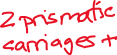 2 prismatic
carriages +